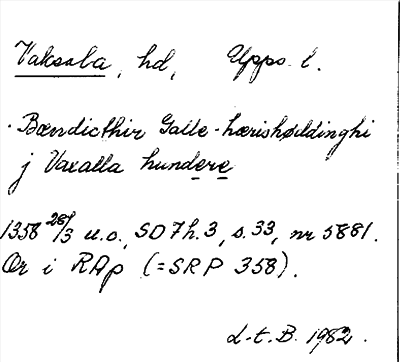 Vaksala, hd, Upps. l.
· Bændicthir Galle - hærishøffdinghi
j Vaxalla hundere
1358 28/3 u.o., SD 7 h. 3, s. 33, nr 5881.
Or i RAp (= SRP 358).
L.t.B. 1982.